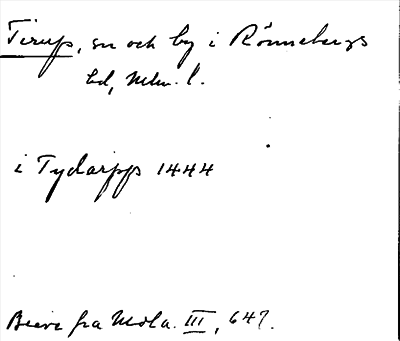 Tirup, sn och by i Rönnebergs
hd, Mlm. l.
i Tydarpp 1444
Breve fra Midla. III, 647.